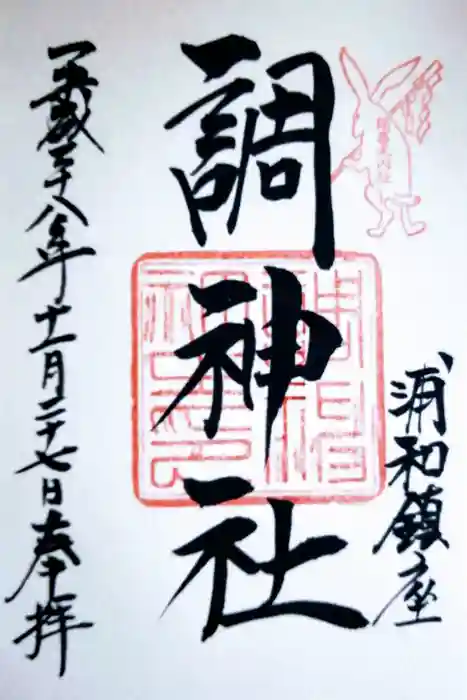 浦和鎮座
調神社
平成二十八年十一月二十七日奉拝